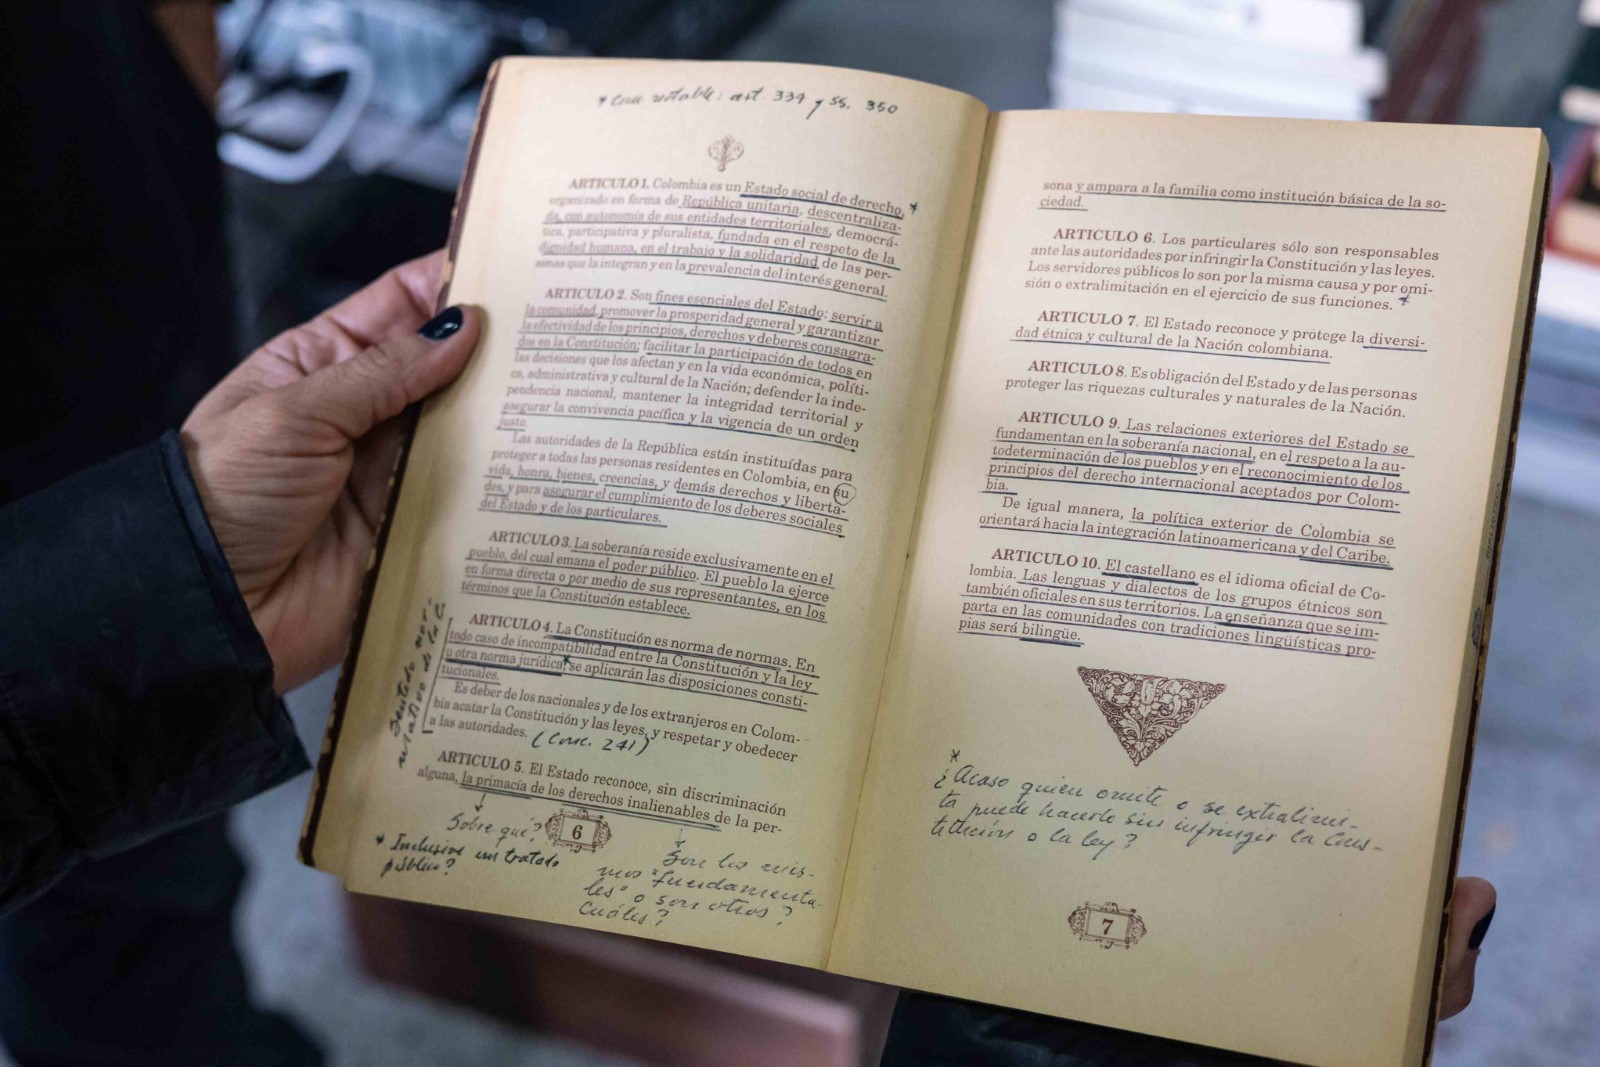 * Conc. notable: art. 334 y ss. 350
ARTICULO 1. Colombia es un Estado social de derecho, *
organizado en forma de República unitaria, descentraliza-
da, con autonomía de sus entidades territoriales, democrá-
tica, participativa y pluralista, fundada en el respeto de la
dignidad humana, en el trabajo y la solidaridad de las per-
sonas que la integran y en la prevalencia del interés general.
ARTICULO 2. Son fines esenciales del Estado: servir a
la comunidad, promover la prosperidad general y garantizar
la efectividad de los principios, derechos y deberes consagra-
dos en la Constitución; facilitar la participación de todos en
las decisiones que los afectan y en la vida económica, políti-
ca, administrativa y cultural de la Nación; defender la inde-
pendencia nacional, mantener la integridad territorial y
asegurar la convivencia pacífica y la vigencia de un orden
justo.
Las autoridades de la República están instituídas para
proteger a todas las personas residentes en Colombia, en su
vida, honra, bienes, creencias, y demás derechos y liberta-
des, y para asegurar el cumplimiento de los deberes sociales
del Estado y de los particulares.
ARTICULO 3. La soberanía reside exclusivamente en el
pueblo, del cual emana el poder público. El pueblo la ejerce
en forma directa o por medio de sus representantes, en los
términos que la Constitución establece.
ARTICULO 4. La Constitución es norma de normas. En
todo caso de incompatibilidad entre la Constitución y la ley
u otra norma jurídica,* se aplicarán las disposiciones consti-
tucionales.
Es deber de los nacionales y de los extranjeros en Colom-
bia acatar la Constitución y las leyes, y respetar y obedecer
a las autoridades. (Conc. 241)
Sentido nor-
mativo de la C
ARTICULO 5. El Estado reconoce, sin discriminación
alguna, la primacía de los derechos inalienables de la per-
Sobre qué?
* Inclusive un tratado
público?
Son los mis-
mos "fundamenta-
les" o son otros?
Cuáles?
6
sona y ampara a la familia como institución básica de la so-
ciedad.
ARTICULO 6. Los particulares sólo son responsables
ante las autoridades por infringir la Constitución y las leyes.
Los servidores públicos lo son por la misma causa y por omi-
sión o extralimitación en el ejercicio de sus funciones. *
ARTICULO 7. El Estado reconoce y protege la diversi-
dad étnica y cultural de la Nación colombiana.
ARTICULO 8. Es obligación del Estado y de las personas
proteger las riquezas culturales y naturales de la Nación.
ARTICULO 9. Las relaciones exteriores del Estado se
fundamentan en la soberanía nacional, en el respeto a la au-
todeterminación de los pueblos y en el reconocimiento de los
principios del derecho internacional aceptados por Colom-
bia.
De igual manera, la política exterior de Colombia se
orientará hacia la integración latinoamericana y del Caribe.
ARTICULO 10. El castellano es el idioma oficial de Co-
lombia. Las lenguas y dialectos de los grupos étnicos son
también oficiales en sus territorios. La enseñanza que se im-
parta en las comunidades con tradiciones lingüísticas pro-
pias será bilingüe.
*
¿Acaso quien omite o se extralimi-
ta puede hacerlo sin infringir la Cons-
titución o la ley?
7